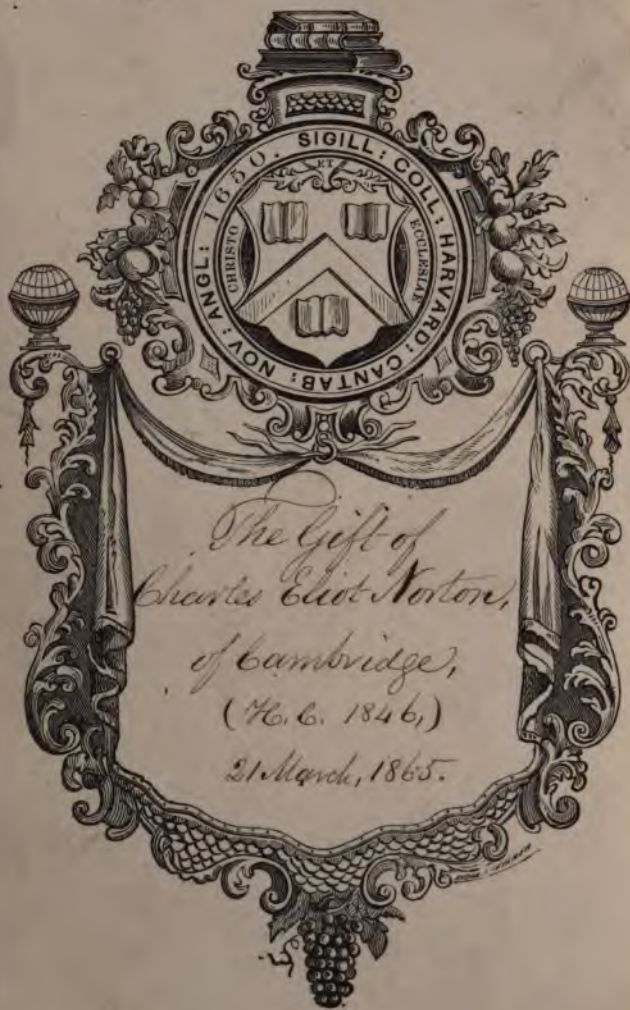 SIGILL: COLL: HARVARD: CANTAB: NOV: ANGL: 1650.
CHRISTO
ET
ECCLESIAE
The Gift of
Charles Eliot Norton,
of Cambridge,
(H.C. 1846,)
21 March, 1865.